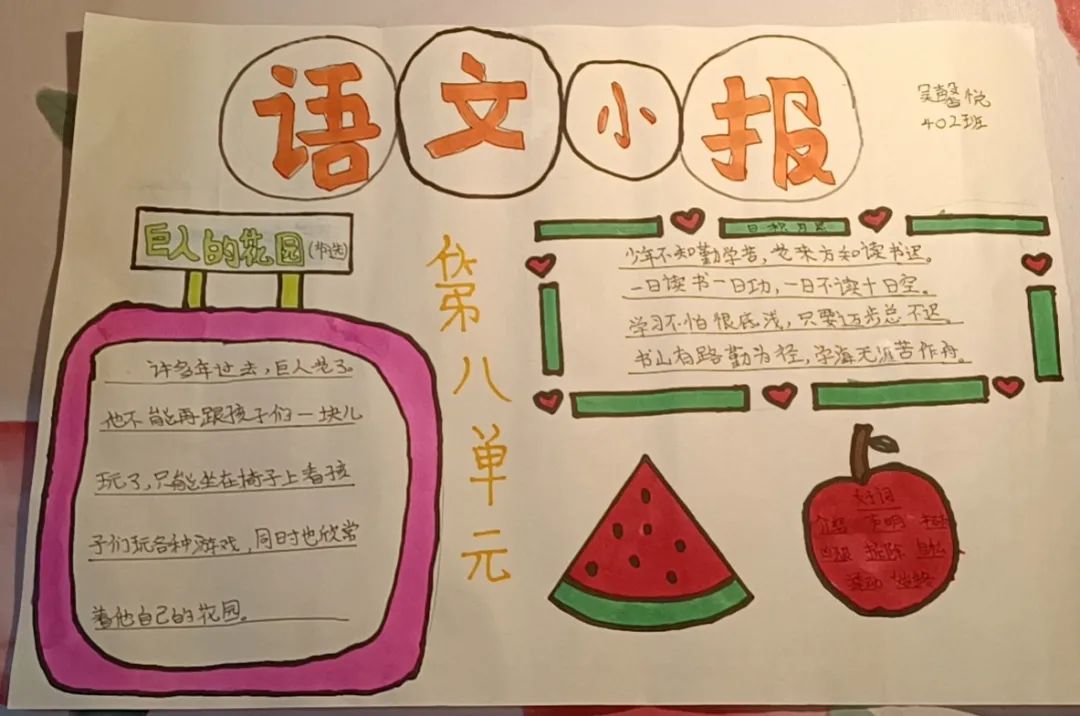 语文小报
吴馨悦
402班
巨人的花园(节选)
许多年过去,巨人老了。
他不能再跟孩子们一块儿
玩了,只能坐在椅子上看孩
子们玩各种游戏,同时也欣赏
着他自己的花园。
第八单元
日积月累
少年不知勤学苦,老来方知读书迟。
一日读书一日功,一日不读十日空。
学习不怕根底浅,只要迈步总不迟。
书山有路勤为径,学海无涯苦作舟。
好词
介绍 声明
凶狠 拆除